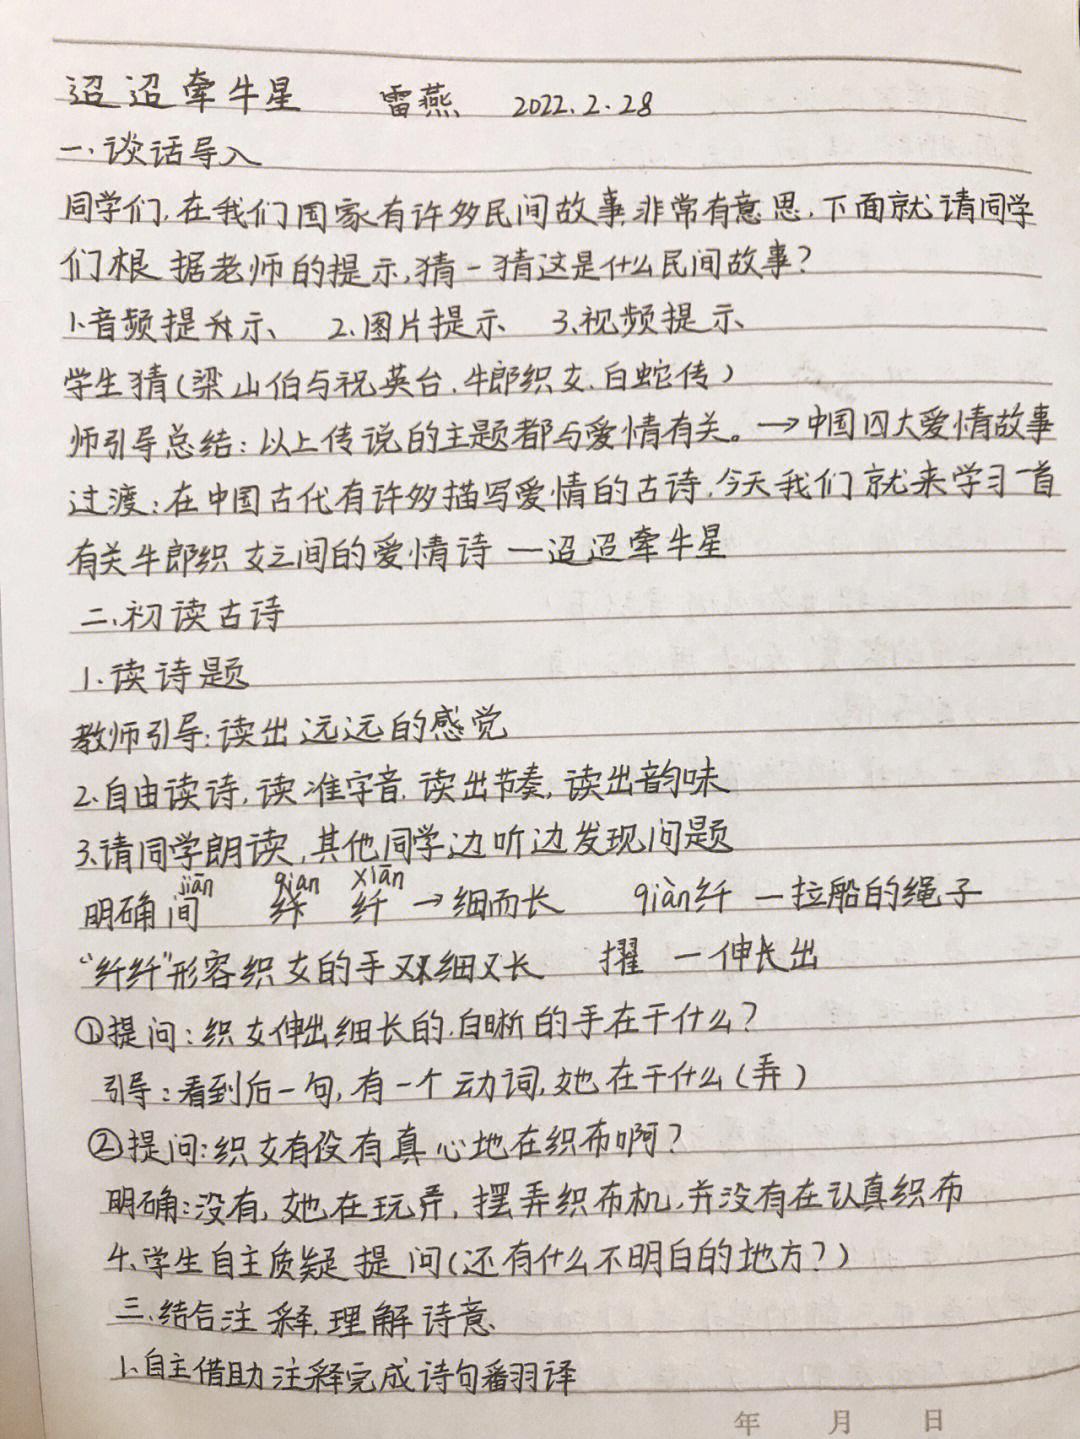 迢迢牵牛星 雷燕 2022.2.28
一、谈话导入
同学们,在我们国家有许多民间故事,非常有意思,下面就请同学
们根据老师的提示,猜一猜这是什么民间故事?
1.音频提示、 2.图片提示、 3.视频提示、
学生猜(梁山伯与祝英台、牛郎织女、白蛇传)
师引导总结:以上传说的主题都与爱情有关。→中国四大爱情故事
过渡:在中国古代有许多描写爱情的古诗,今天我们就来学习一首
有关牛郎织女之间的爱情诗—迢迢牵牛星
二、初读古诗
1.读诗题
教师引导:读出远远的感觉
2.自由读诗,读准字音,读出节奏,读出韵味
3.请同学朗读,其他同学边听边发现问题
jiān qiàn xiān
明确 间 纤 纤→细而长 qiàn纤—拉船的绳子
“纤纤”形容织女的手又细又长 擢—伸长出
①提问:织女伸出细长的、白晰的手在干什么?
引导:看到后一句,有一个动词,她在干什么(弄)
②提问:织女有没有真心地在织布啊?
明确:没有,她在玩弄,摆弄织布机,并没有在认真织布
4.学生自主质疑提问(还有什么不明白的地方?)
三.结合注释,理解诗意、
1.自主借助注释完成诗句翻译
年 月 日